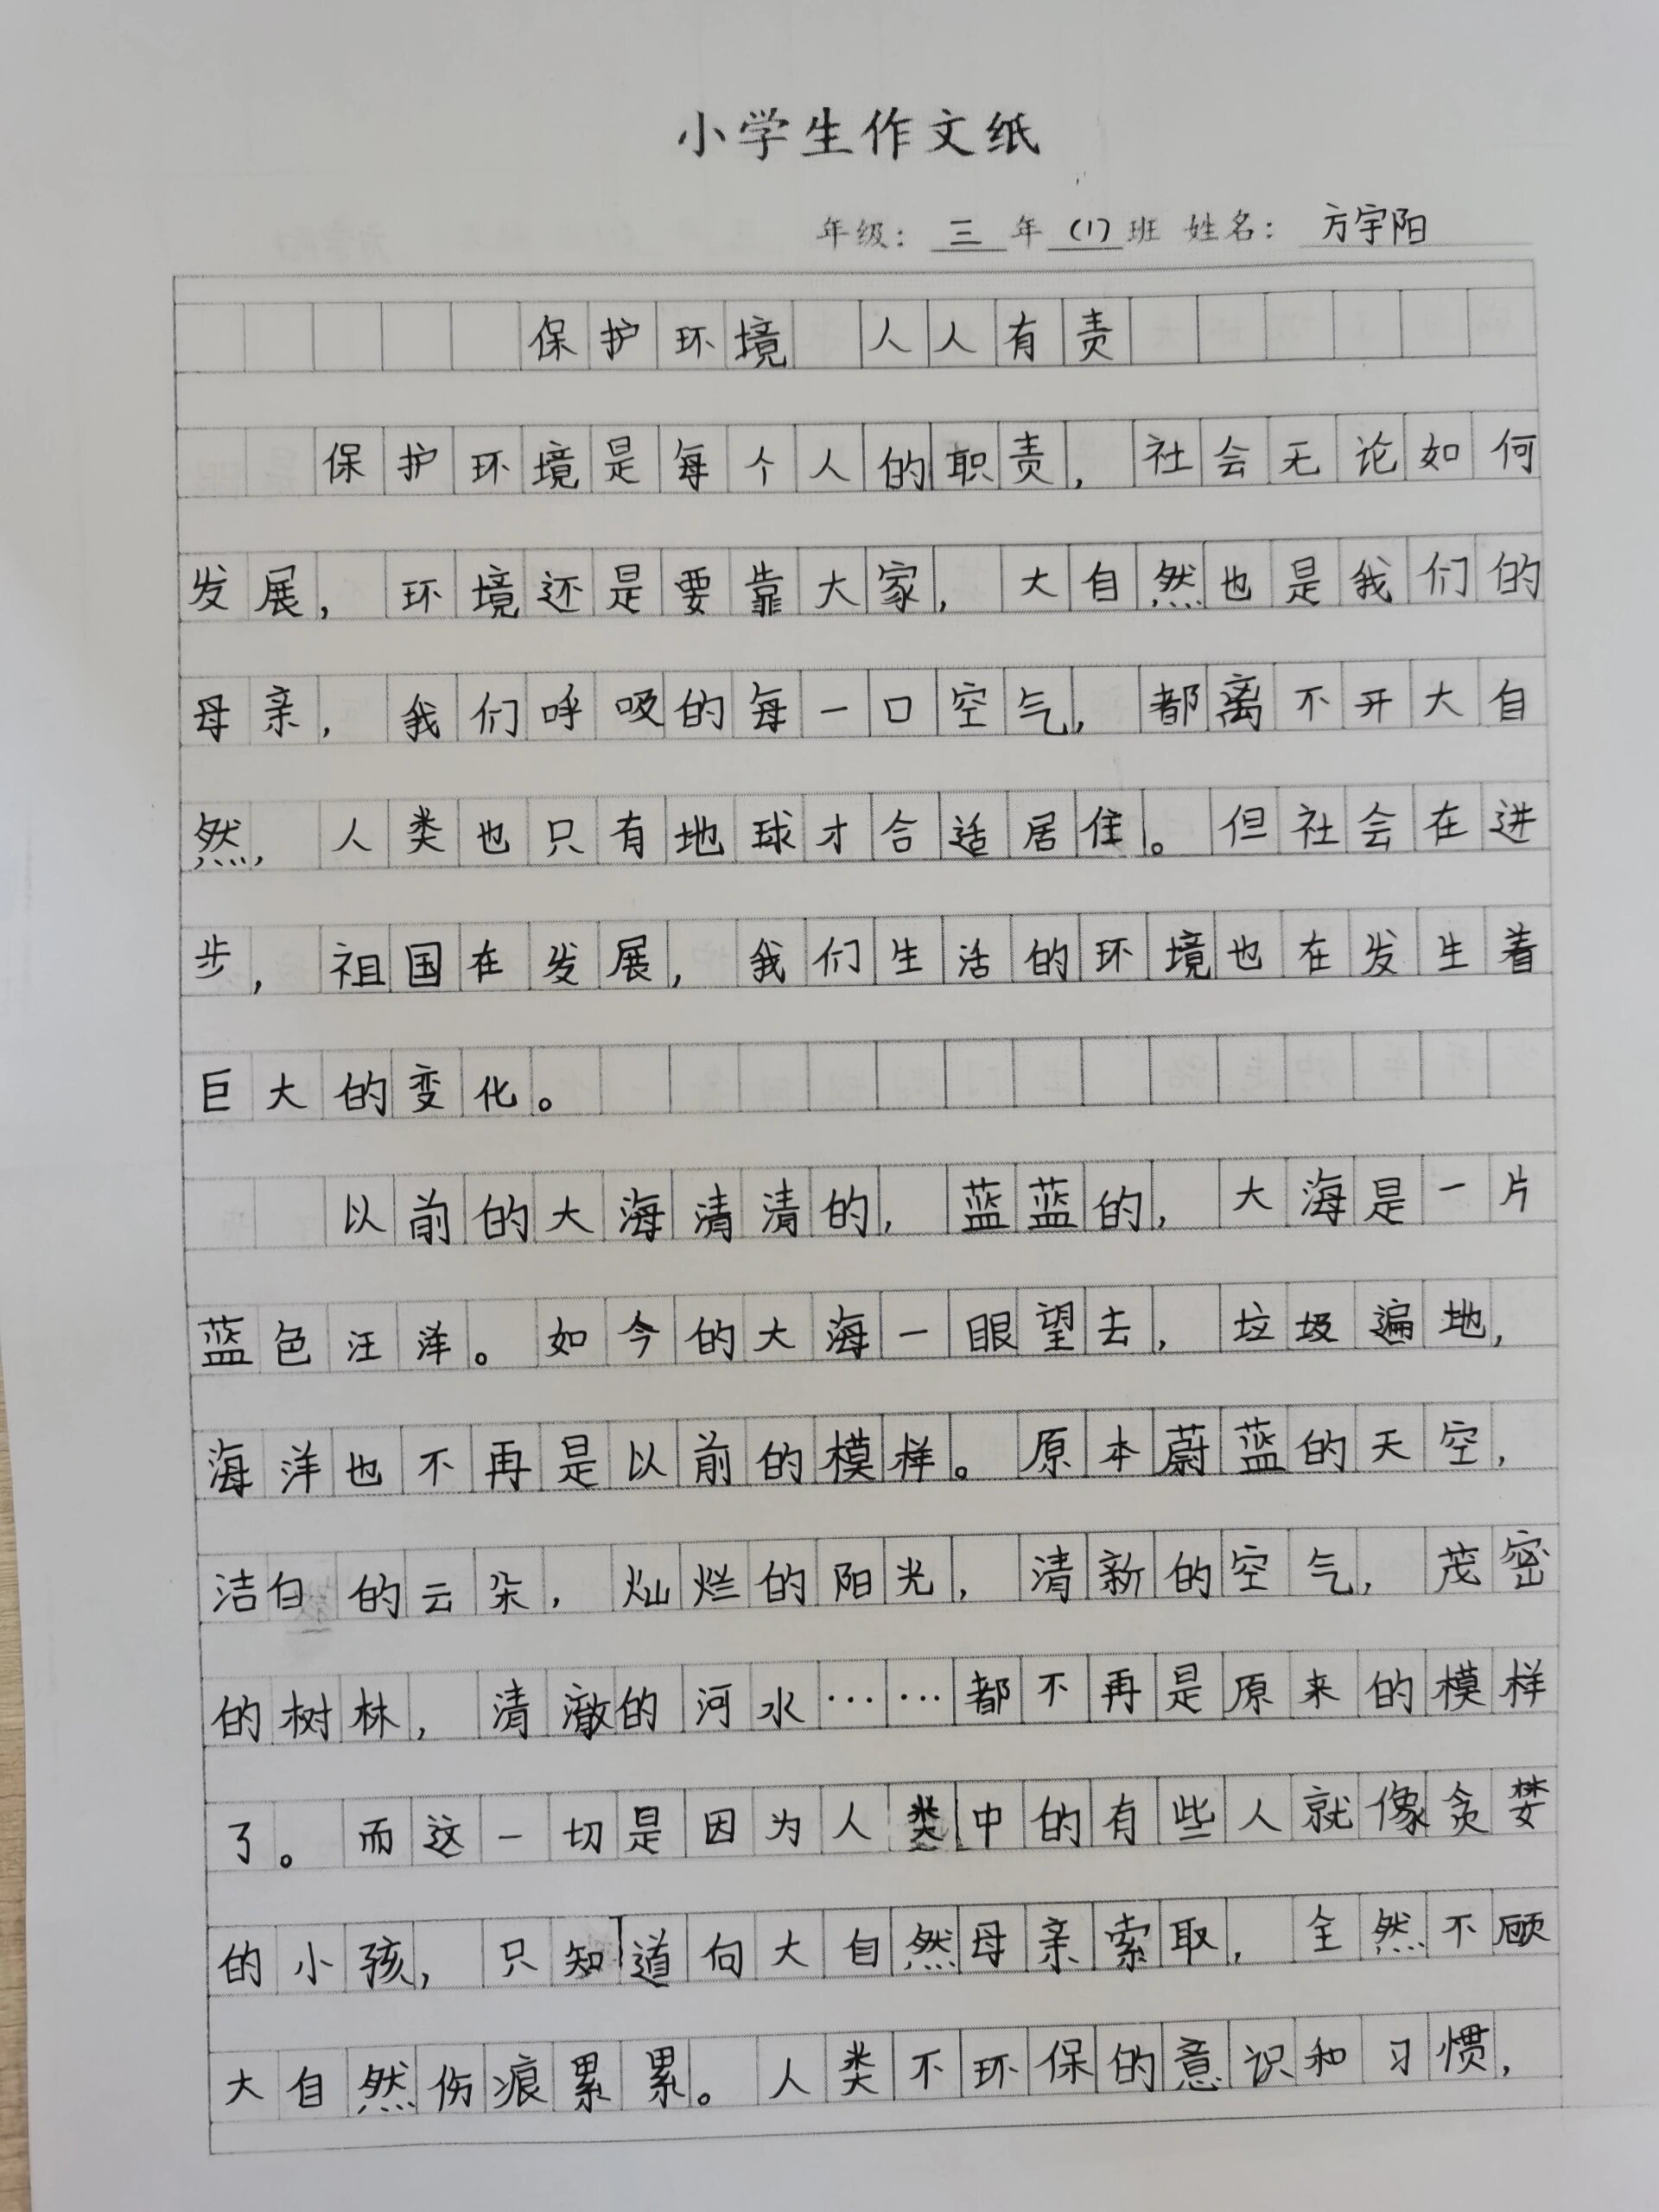 小学生作文纸
年级：三年(1)班 姓名：方宇阳
保护环境 人人有责
保护环境是每个人的职责，社会无论如何
发展，环境还是要靠大家，大自然也是我们的
母亲，我们呼吸的每一口空气，都离不开大自
然，人类也只有地球才合适居住。但社会在进
步，祖国在发展，我们生活的环境也在发生着
巨大的变化。
以前的大海清清的，蓝蓝的，大海是一片
蓝色汪洋。如今的大海一眼望去，垃圾遍地，
海洋也不再是以前的模样。原本蔚蓝的天空，
洁白的云朵，灿烂的阳光，清新的空气，茂密
的树林，清澈的河水……都不再是原来的模样
了。而这一切是因为人类中的有些人就像贪婪
的小孩，只知道向大自然母亲索取，全然不顾
大自然伤痕累累。人类不环保的意识和习惯，